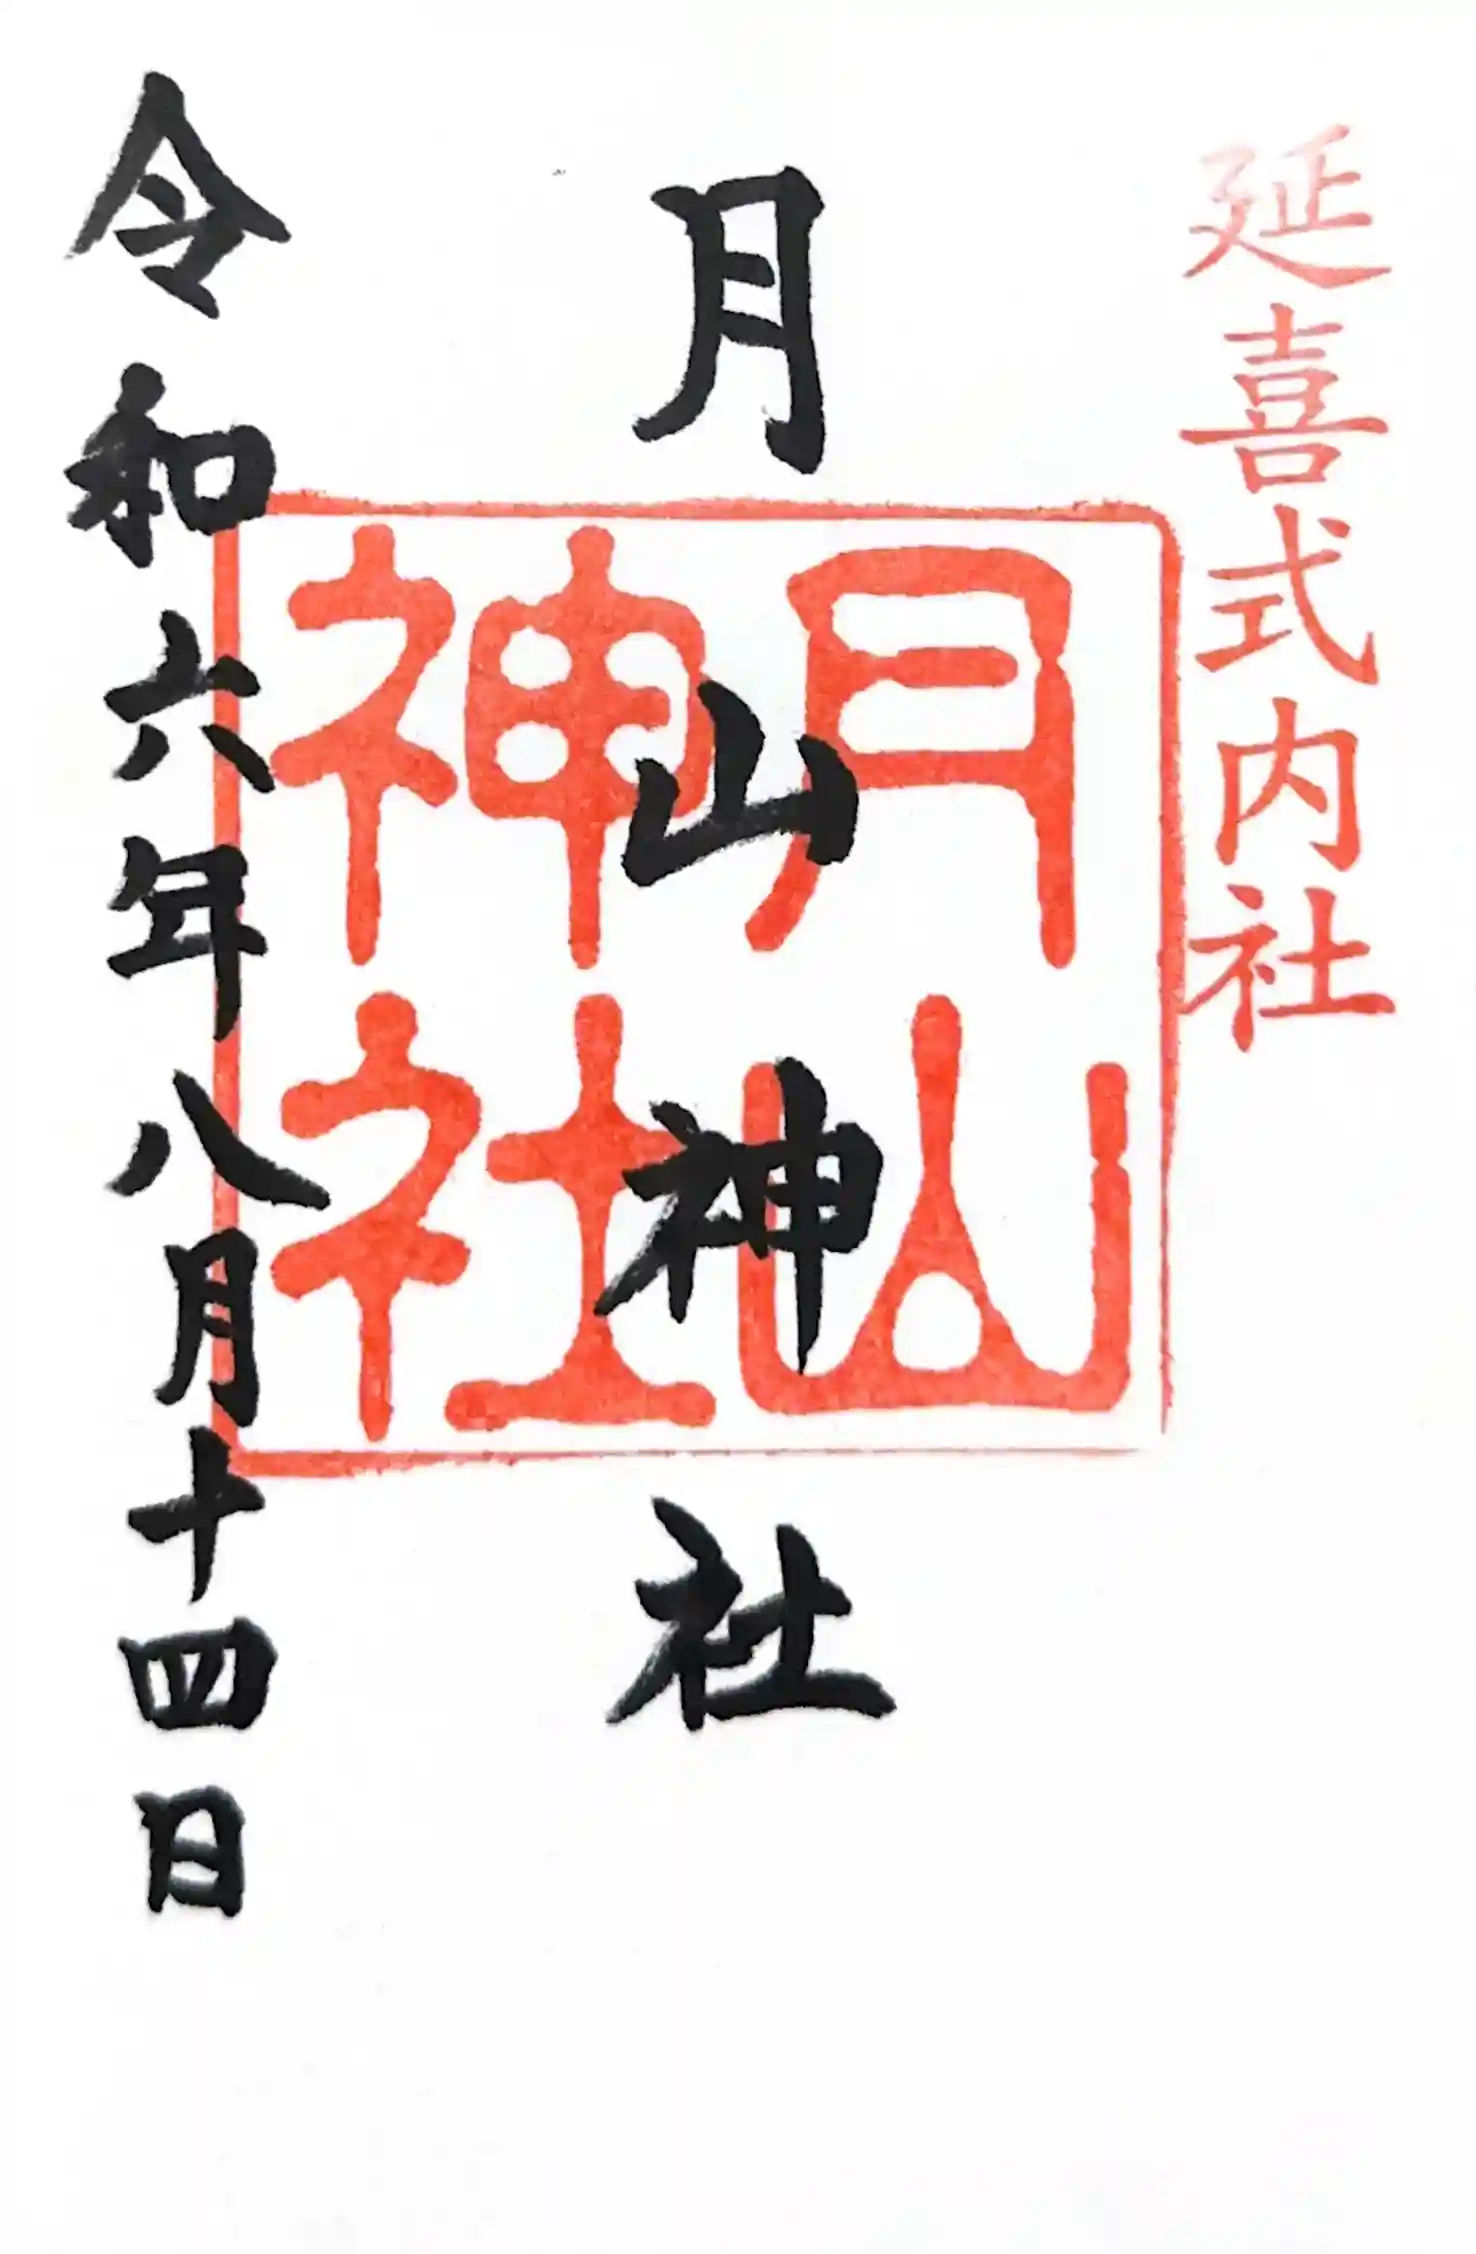 延喜式内社
月山神社
月山
神社
令和六年八月十四日